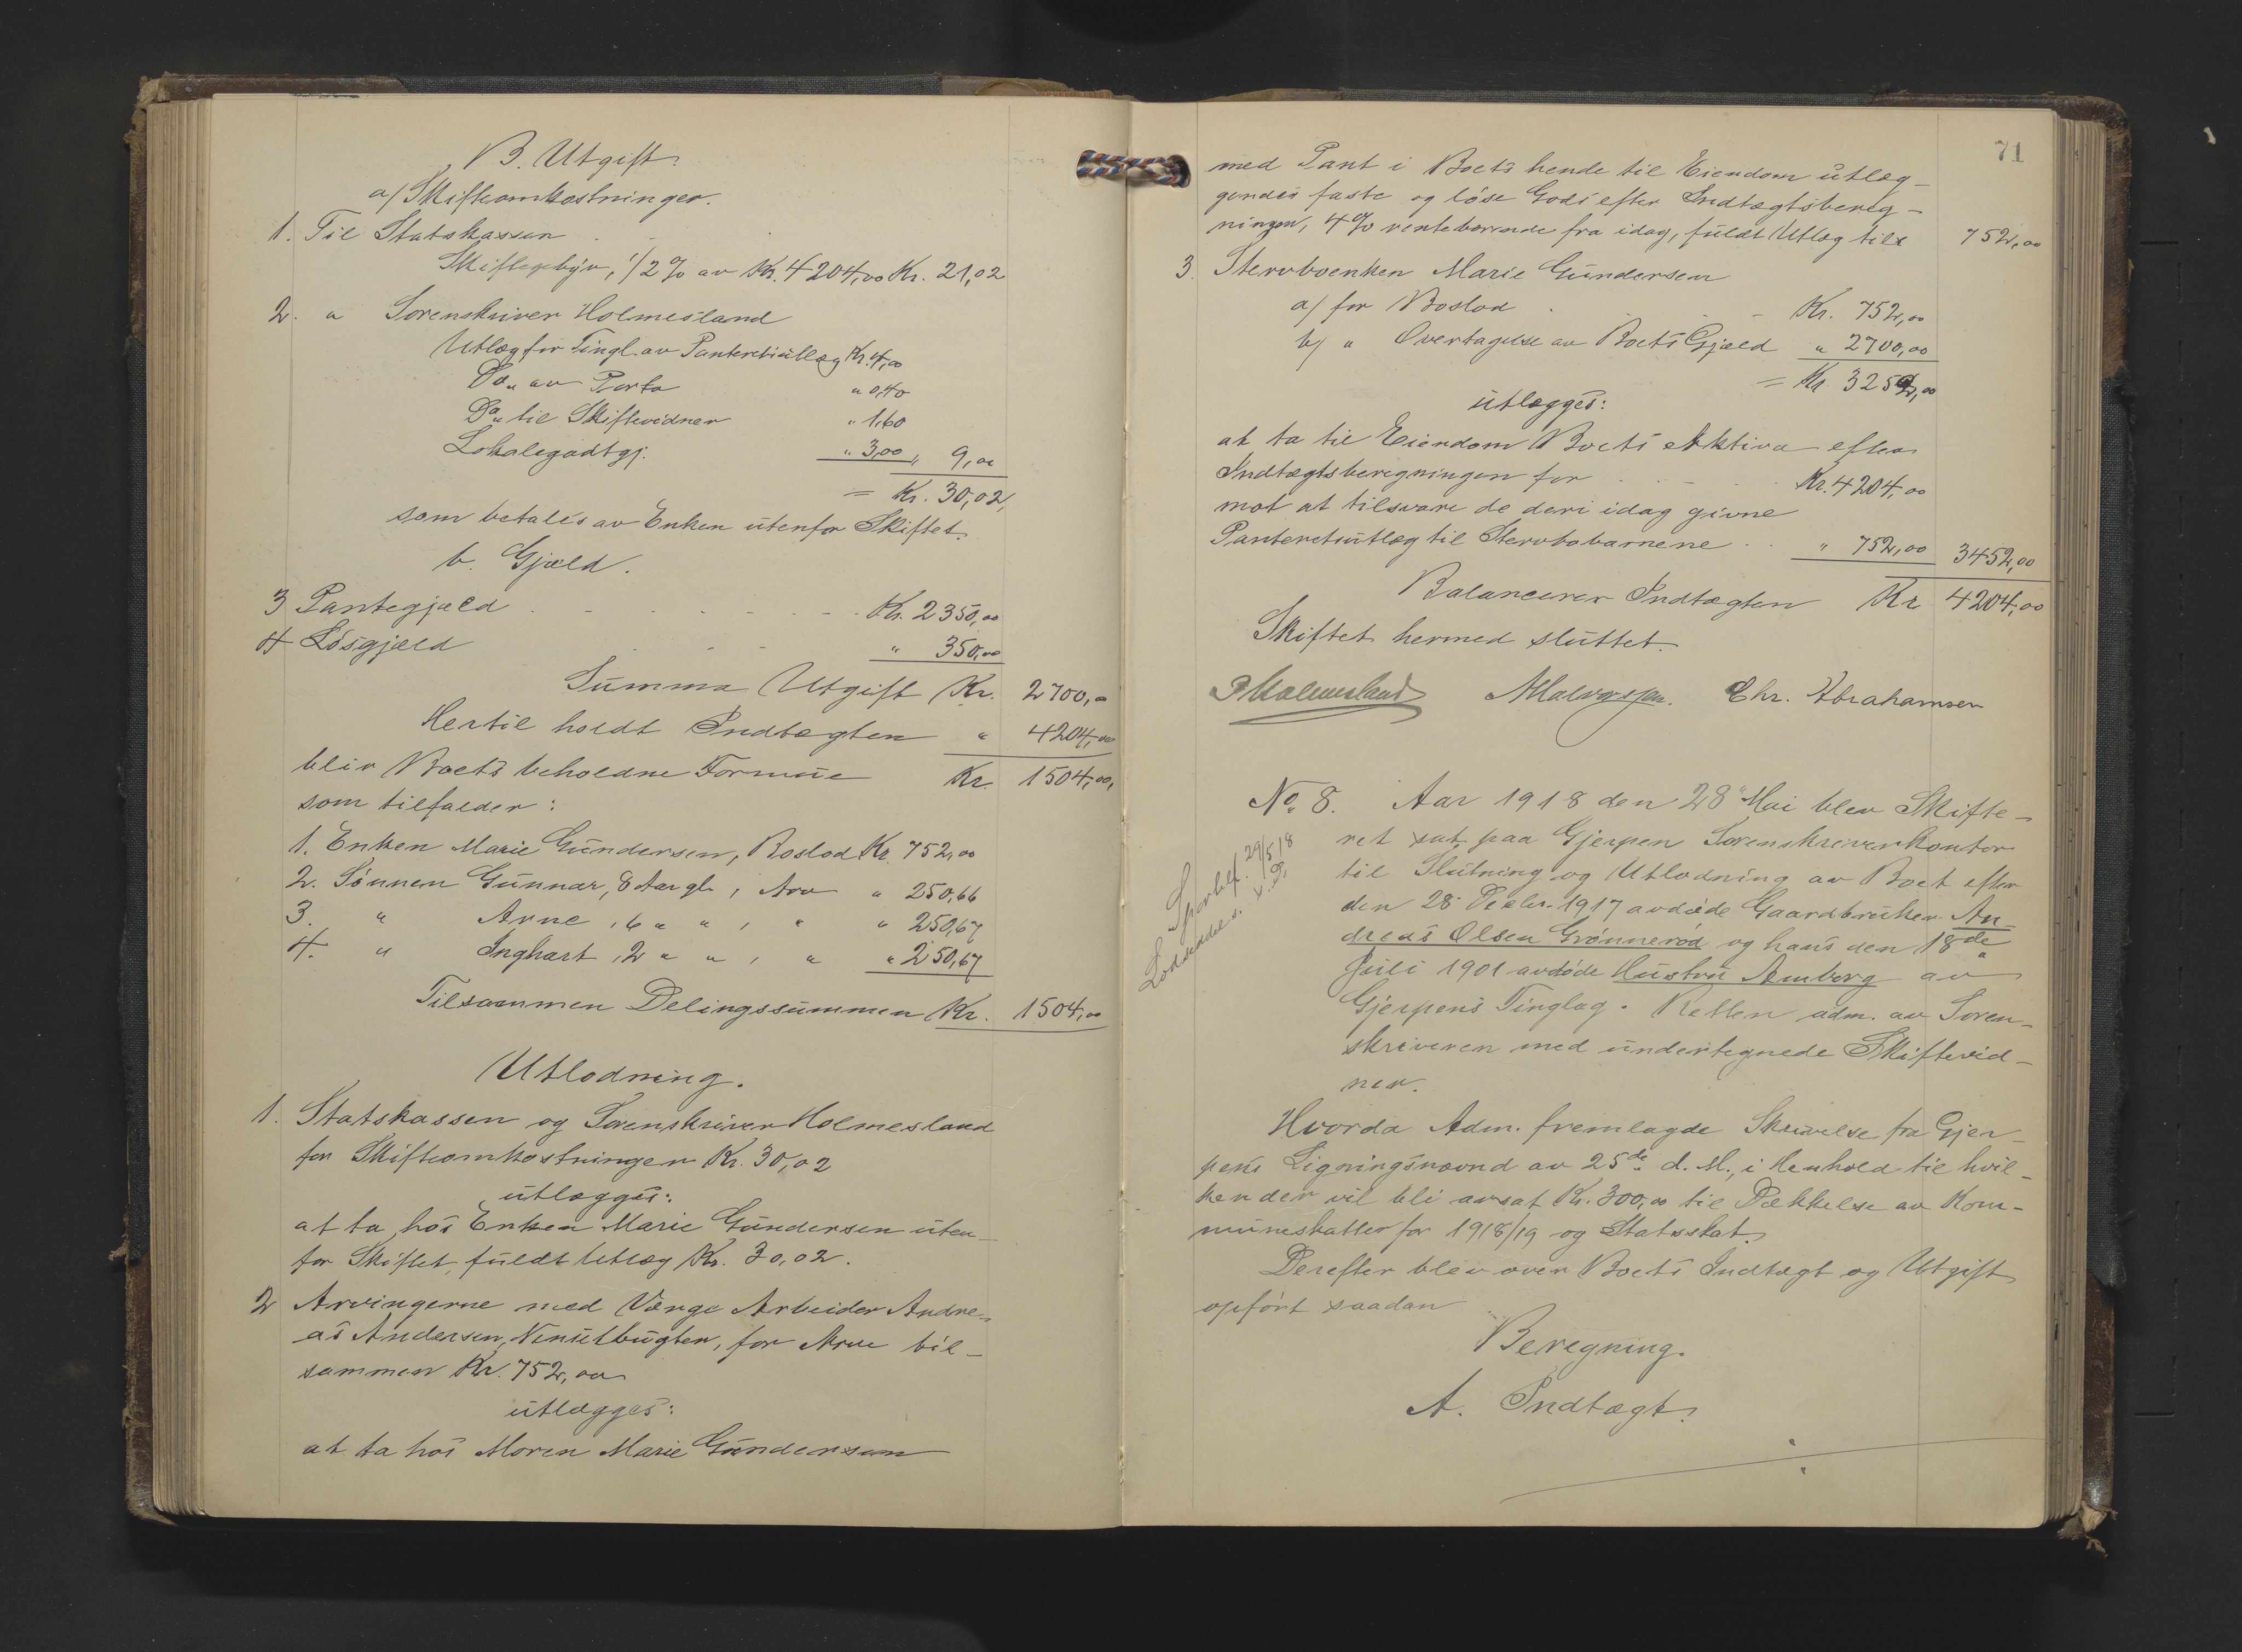 B. Utgift.
a/ Skifteomkostninger.
1. Til Statskassen
Skiftegebyr, 1/2 % av Kr. 4204,00 Kr. 21,02
2. " Sorenskriver Holmesland
Utlæg for Tingl. av Panteretsutlæg Kr. 4,00
Do " av Porto " 0,40
Do " til Skiftevidner " 1,60
Lokalegodtgj. " 3,00 " 9,00
= Kr. 30,02,
som betales av Enken utenfor Skiftet.
b. Gjæld.
3 Pantegjæld Kr. 2350,00
4 Løsgjæld " 350,00
Summa Utgift Kr. 2700,00
Hertil holdt Indtægten " 4204,00
bliv Boets beholdne Formue Kr. 1504,00,
som tilfalder:
1. Enken Marie Gundersen, Boslod Kr. 752,00
2. Sønnen Gunnar, 8 Aar gl., Arv " 250,66
3. " Arne, 6 " " , " " 250,67
4. " Inghart, 2 " " , " " 250,67
Tilsammen Delingssummen Kr. 1504,00
Utlodning.
1. Statskassen og Sorenskriver Holmesland
for Skifteomkostningen Kr. 30,02
utlægges:
at ta hos Enken Marie Gundersen uten-
for Skiftet, fuldt Utlæg Kr. 30,02.
2 Arvingerne med Værge Arbeider Andre-
as Andersen, for Arve til-
sammen Kr. 752,00
utlægges:
at ta hos Moren Marie Gundersen
71
med Pant i Boets hende til Eiendom utlæg-
gendes faste og løse Gods efter Indtægtsbereg-
ningen, 4 % rentebærende fra idag, fuldt Utlæg til 752,00
3. Stervboenken Marie Gundersen
a/ for Boslod Kr. 752,00
b/ " Overtagelse av Boets Gjæld " 2700,00
= Kr 3252,00
utlægges:
at ta til Eiendom Boets Aktiva efter
Indtægtsberegningen for Kr. 4204,00
mot at tilsvare de deri idag givne
Panteretsutlæg til Stervbobarnene " 752,00 3452,00
Balancerer Indtægten Kr 4204,00
Skiftet hermed sluttet.
Holmesland AHalvorsen. Chr. Abrahamsen
No. 8. Aar 1918 den 28" Mai blev Skifte-
ret sat paa Gjerpen Sorenskriverkontor
til Slutning og Utlodning av Boet efter
den 28. Decbr. 1917 avdøde Gaardbruker An-
dreas Olsen Grønnerød og hans den 18de
Juli 1901 avdøde Hustru Amborg av
Gjerpens Tinglag. Retten adm. av Soren-
skriveren med undertegnede Skiftevid-
ner.
29/5 18
Loddseddel
Hvorda Adm. fremlagde Skrivelse fra Gjer-
pens Ligningsnævnd av 25de d. M., i Henhold til hvil-
ken der vil bli avsat Kr. 300,00 til Dækkelse av Kom-
muneskatter for 1918/19 og Statsskat.
Derefter blev over Boets Indtægt og Utgift
opført saadan
Beregning.
A. Indtægt.